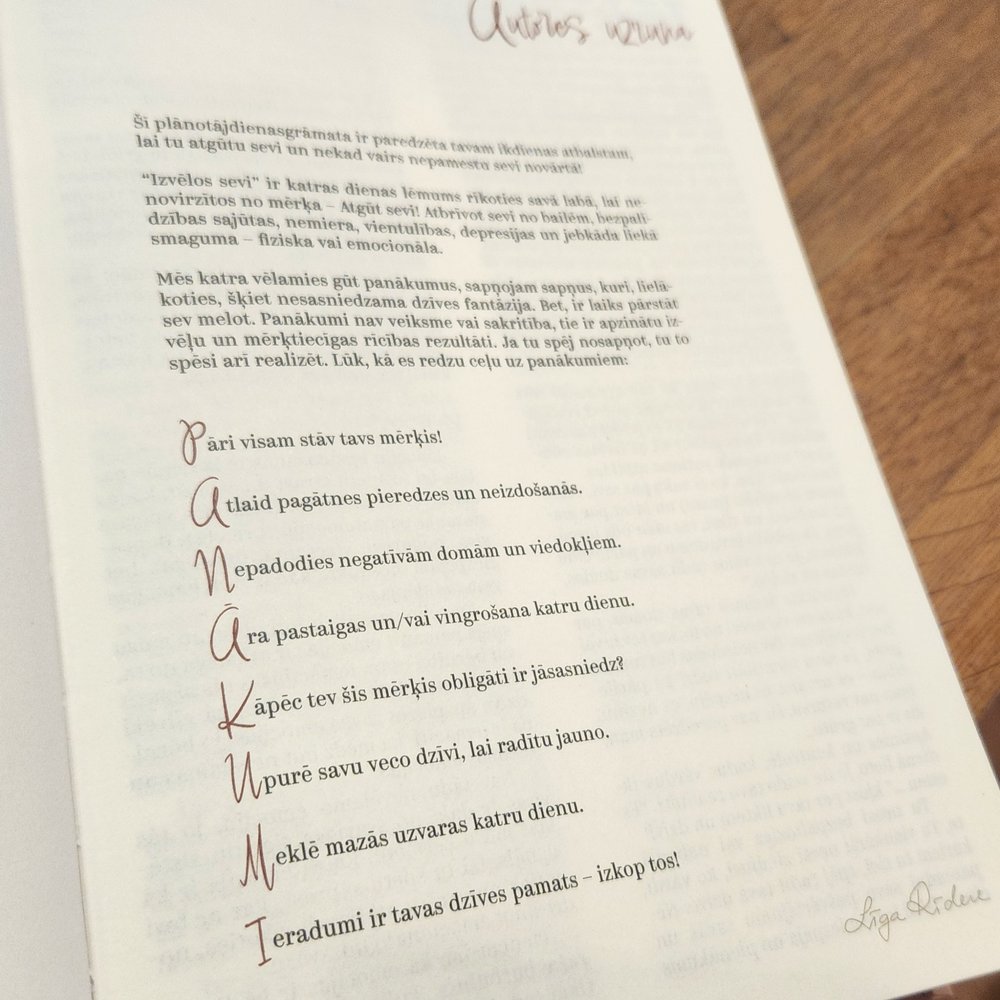 Autores uzruna
Šī plānotājdienasgrāmata ir paredzēta tavam ikdienas atbalstam,
lai tu atgūtu sevi un nekad vairs nepamestu sevi novārtā!
"Izvēlos sevi" ir katras dienas lēmums rīkoties savā labā, lai ne-
novirzītos no mērķa – Atgūt sevi! Atbrīvot sevi no bailēm, bezpalī-
dzības sajūtas, nemiera, vientulības, depresijas un jebkāda liekā
smaguma – fiziska vai emocionāla.
Mēs katra vēlamies gūt panākumus, sapņojam sapņus, kuri, lielā-
koties, šķiet nesasniedzama dzīves fantāzija. Bet, ir laiks pārstāt
sev melot. Panākumi nav veiksme vai sakritība, tie ir apzinātu iz-
vēļu un mērķtiecīgas rīcības rezultāti. Ja tu spēj nosapņot, tu to
spēsi arī realizēt. Lūk, kā es redzu ceļu uz panākumiem:
Pāri visam stāv tavs mērķis!
Atlaid pagātnes pieredzes un neizdošanās.
Nepadodies negatīvām domām un viedokļiem.
Āra pastaigas un/vai vingrošana katru dienu.
Kāpēc tev šis mērķis obligāti ir jāsasniedz?
Upurē savu veco dzīvi, lai radītu jauno.
Meklē mazās uzvaras katru dienu.
Ieradumi ir tavas dzīves pamats – izkop tos!
Līga Rīdere